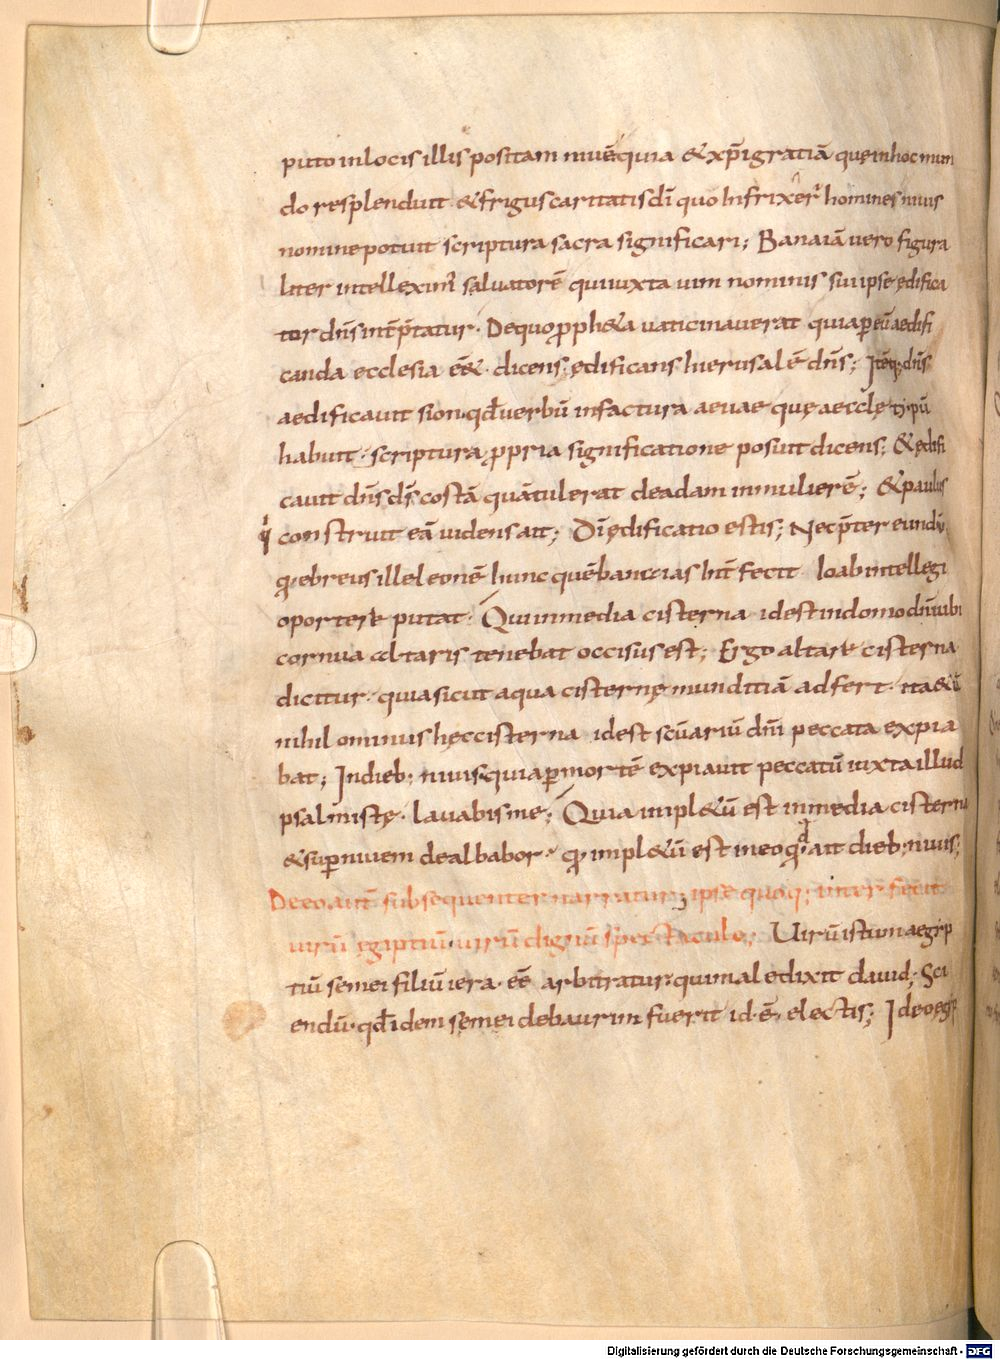 puto inlocis illis positam nivē quia &xp̄i gratiā quę inhoc mun
do resplenduit &frigus caritatis dī quo infrixer̄ homines nivis
nomine potuit scriptura sacra significari; Banaiā vero figura
liter intelleximꝰ salvatorē qui iuxta uim nominis sui ipse ędifica
tor dn̄s int̄p̄tatur· Dequo ꝓph&a vaticinaverat quia ꝑ eū aedifi
canda ecclesia eē&· dicens; ędificans hierusalē dn̄s; Itēq; dn̄s
aedificavit sion· qd̄ verbū infactura aevae quę aecclę tẏpū
habuit· scriptura ꝓpria significatione posuit dicens; &ędifi
cavit dn̄s ds̄ costā quā tulerat deadam inmulierē; &paulus
construit eā videns ait; Dī ędificatio estis; Nec p̄ter eundū
qꝫ ebreus ille leonē hunc quē banaias int̄fecit Ioab intellegi
oportere putat· Qui inmedia cisterna idest indomo dn̄i ubi
cornua altaris tenebat occisus est; Ergo altare cisterna
dicitur· quia sicut aqua cisternę munditiā adfert· ita &ū
nihilominus hęc cisterna idest sc̄uariū dn̄i peccata expia
bat; Indieb; nivis quia ꝑ mortē expiavit peccatū iuxta illud
psalmistę· lavabis me; Quia impl&ū est inmedia cisterna
&suꝑ nivem dealbabor· qꝫ impl&ū est ineo qd ait dieb; nivis;
Deeo aut̄ subsequenter narratur; ipse quoq; interfecit
virū ęgiptiū· virū dignū spectaculo; Virū istum aegip
tiū semei filiū iera· eē arbitratur· qui maledixit david; Sci
endū· qd̄ idem semei debaurim fuerit id·ē· electis; Ideo ęgip